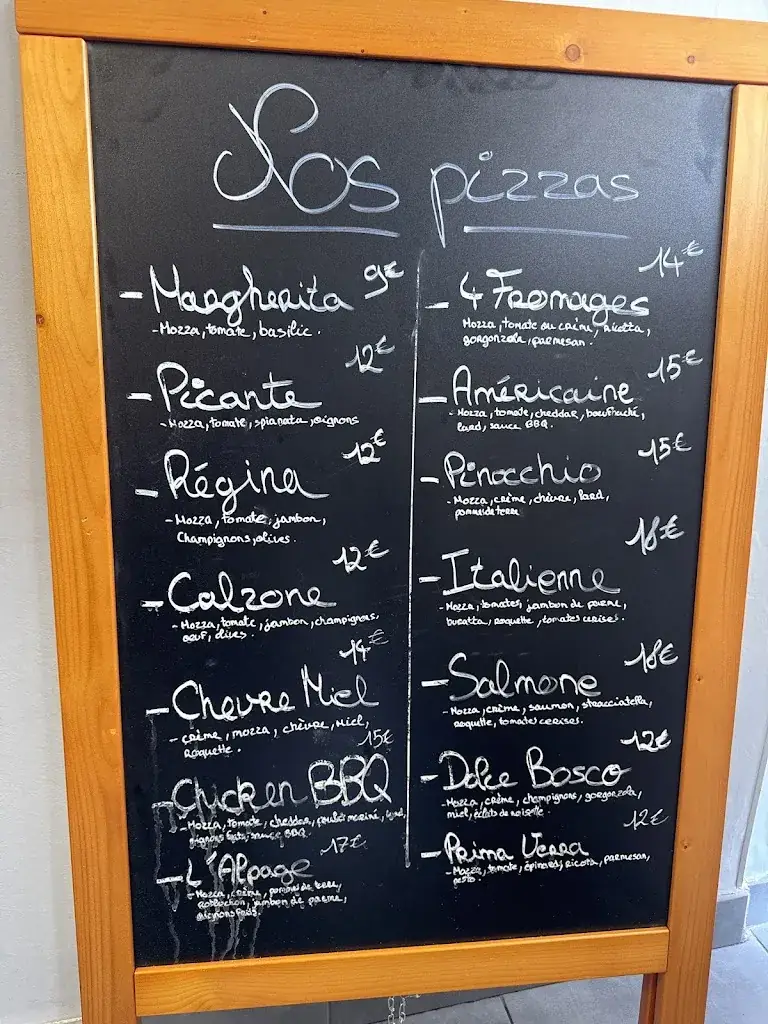 Nos pizzas
- Margherita 9€
- Mozza, tomate, basilic.
- Picante 12€
- Mozza, tomate, spianata, oignons
- Régina 12€
- Mozza, tomate, jambon,
Champignons, olives.
- Calzone 12€
- Mozza, tomate, jambon, champignons,
œuf, olives.
- Chevre Miel 14€
- crème, mozza, chèvre, miel,
Roquette.
- Chicken BBQ 15€
- Mozza, tomate, cheddar, poulet mariné, lard,
oignons frits, sauce BBQ.
- L'Alpage 17€
- Mozza, crème, pommes de terre,
roblochon, jambon de parme,
oignons frits.
- 4 Fromages 14€
Mozza, tomate ou crème, ricotta,
gorgonzola, parmesan.
- Américaine 15€
- Mozza, tomate, cheddar, bœuf haché,
lard, sauce BBQ.
- Pinocchio 15€
- Mozza, crème, chèvre, lard,
pomme de terre
- Italienne 18€
- Mozza, tomates, jambon de parme,
buratta, roquette, tomates cerises.
- Salmone 18€
- Mozza, crème, saumon, stracciatella,
roquette, tomates cerises.
- Dolce Bosco 12€
- Mozza, crème, champignons, gorgonzola,
miel, éclats de noisette.
- Prima Verra 12€
- Mozza, tomate, épinards, ricota, parmesan,
pesto.